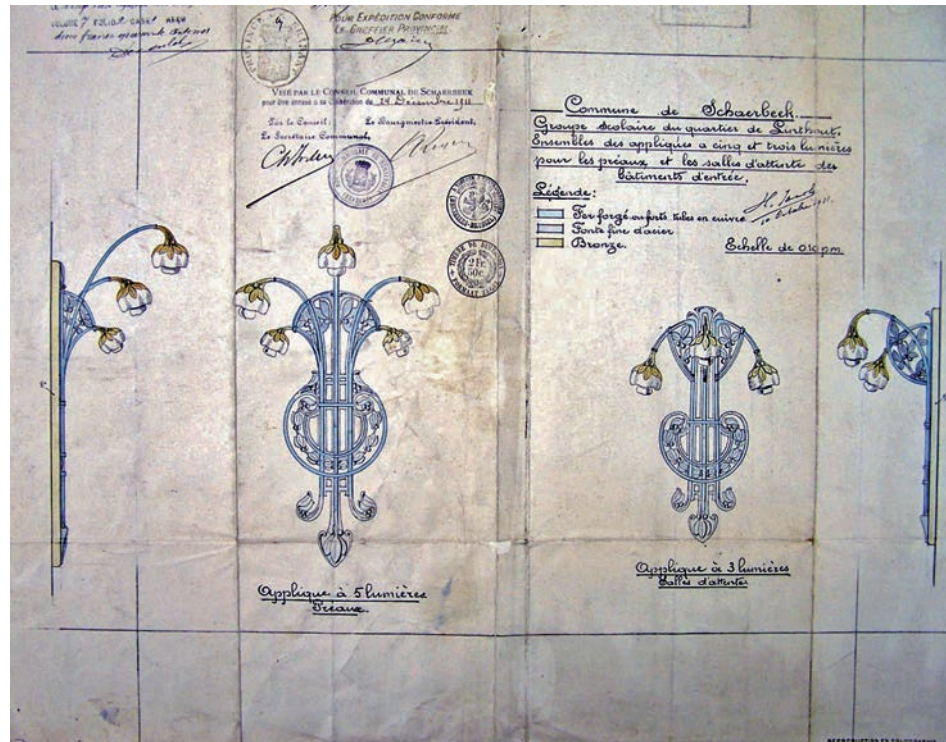 VOLUME 7 FOLIO CASE
POUR EXPÉDITION CONFORME
LE GREFFIER PROVINCIAL
VISÉ PAR LE CONSEIL COMMUNAL DE SCHAERBEEK
pour être annexé à sa délibération du 29 Décembre 1911
Par le Conseil: Le Bourgmestre-Président,
Le Secrétaire Communal,
2 Fr.
50c.
Commune de Schaerbeek.
Groupe scolaire du quartier de Linthout.
Ensembles des appliques à cinq et trois lumières
pour les préaux et les salles d'attente des
bâtiments d'entrée.
Légende:
Fer forgé ou forts tubes en cuivre
Fonte fine d'acier
Bronze.
Echelle de 0.10 p.m.
Applique à 5 lumières
Préaux.
Applique à 3 lumières
Salles d'attentes